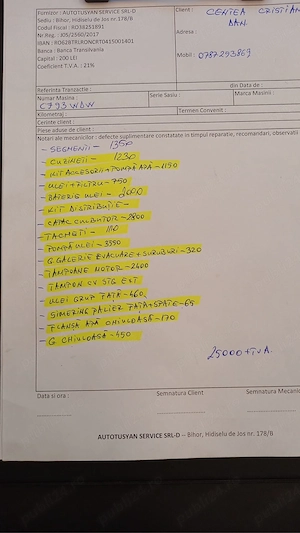 Furnizor : AUTOTUSYAN SERVICE SRL-D
Sediu : Bihor, Hidiselu de Jos nr. 178/B
Codul Fiscal : RO36251891
Nr Reg : J05/2560/2017
Banca : Banca Transilvania
Capital : 200 LEI
Coeficient T.V.A. : 21%
Client :
CRISTIAN
DAN
Adresa :
Mobil : 0787293869
Referinta Tranzactie :
din Data de :
Numar Masina :
Serie Sasiu :
Marca Masina :
C793WDW
Kilometraj :
Termen Convenit :
Cerinte client :
Piese aduse de client :
Notari ale mecanicilor : defecte suplimentare constatate in timpul reparatie, recomandari, observatii
- SEGMENTI - 1350
- CUZINETI - 1230
- KIT ACCESORII + POMPĂ APĂ - 1190
- ULEI + FILTRU - 750
- BATERIE ULEI - 2000
- KIT DISTRIBUTIE -
- CAPAC CULBUTOR - 2800
- TACHETI - 1110
- POMPĂ ULEI - 3350
- G. GALERIE EVACUARE + SURUBURI - 320
- TAMPOANE MOTOR - 2400
- TAMPON CV STG EXT
- ULEI GRUP FAȚĂ - 460
- SIMERING PALIER FAȚĂ + SPATE - 65
- FLANȘĂ APĂ CHIULOASĂ - 170
- G CHIULOASĂ - 450
25000 + TVA
Data si ora :
Semnatura Client
Semnatura Mecanic
AUTOTUSYAN SERVICE SRL-D – Bihor, Hidiselu de Jos nr. 178/B